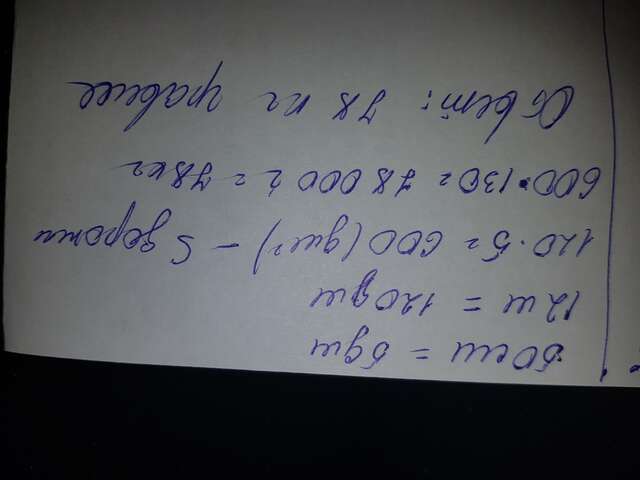 50см = 5дм
12м = 120дм
120·5=600(дм²) - S дорожки
600·130=78000г=78кг
Ответ: 78 кг гравия